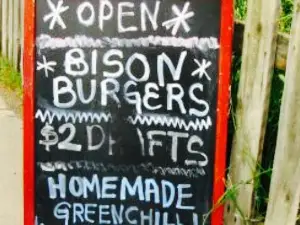 *OPEN*
*BISON*
BURGERS
$2 DRAFTS
HOMEMADE
GREENCHILI